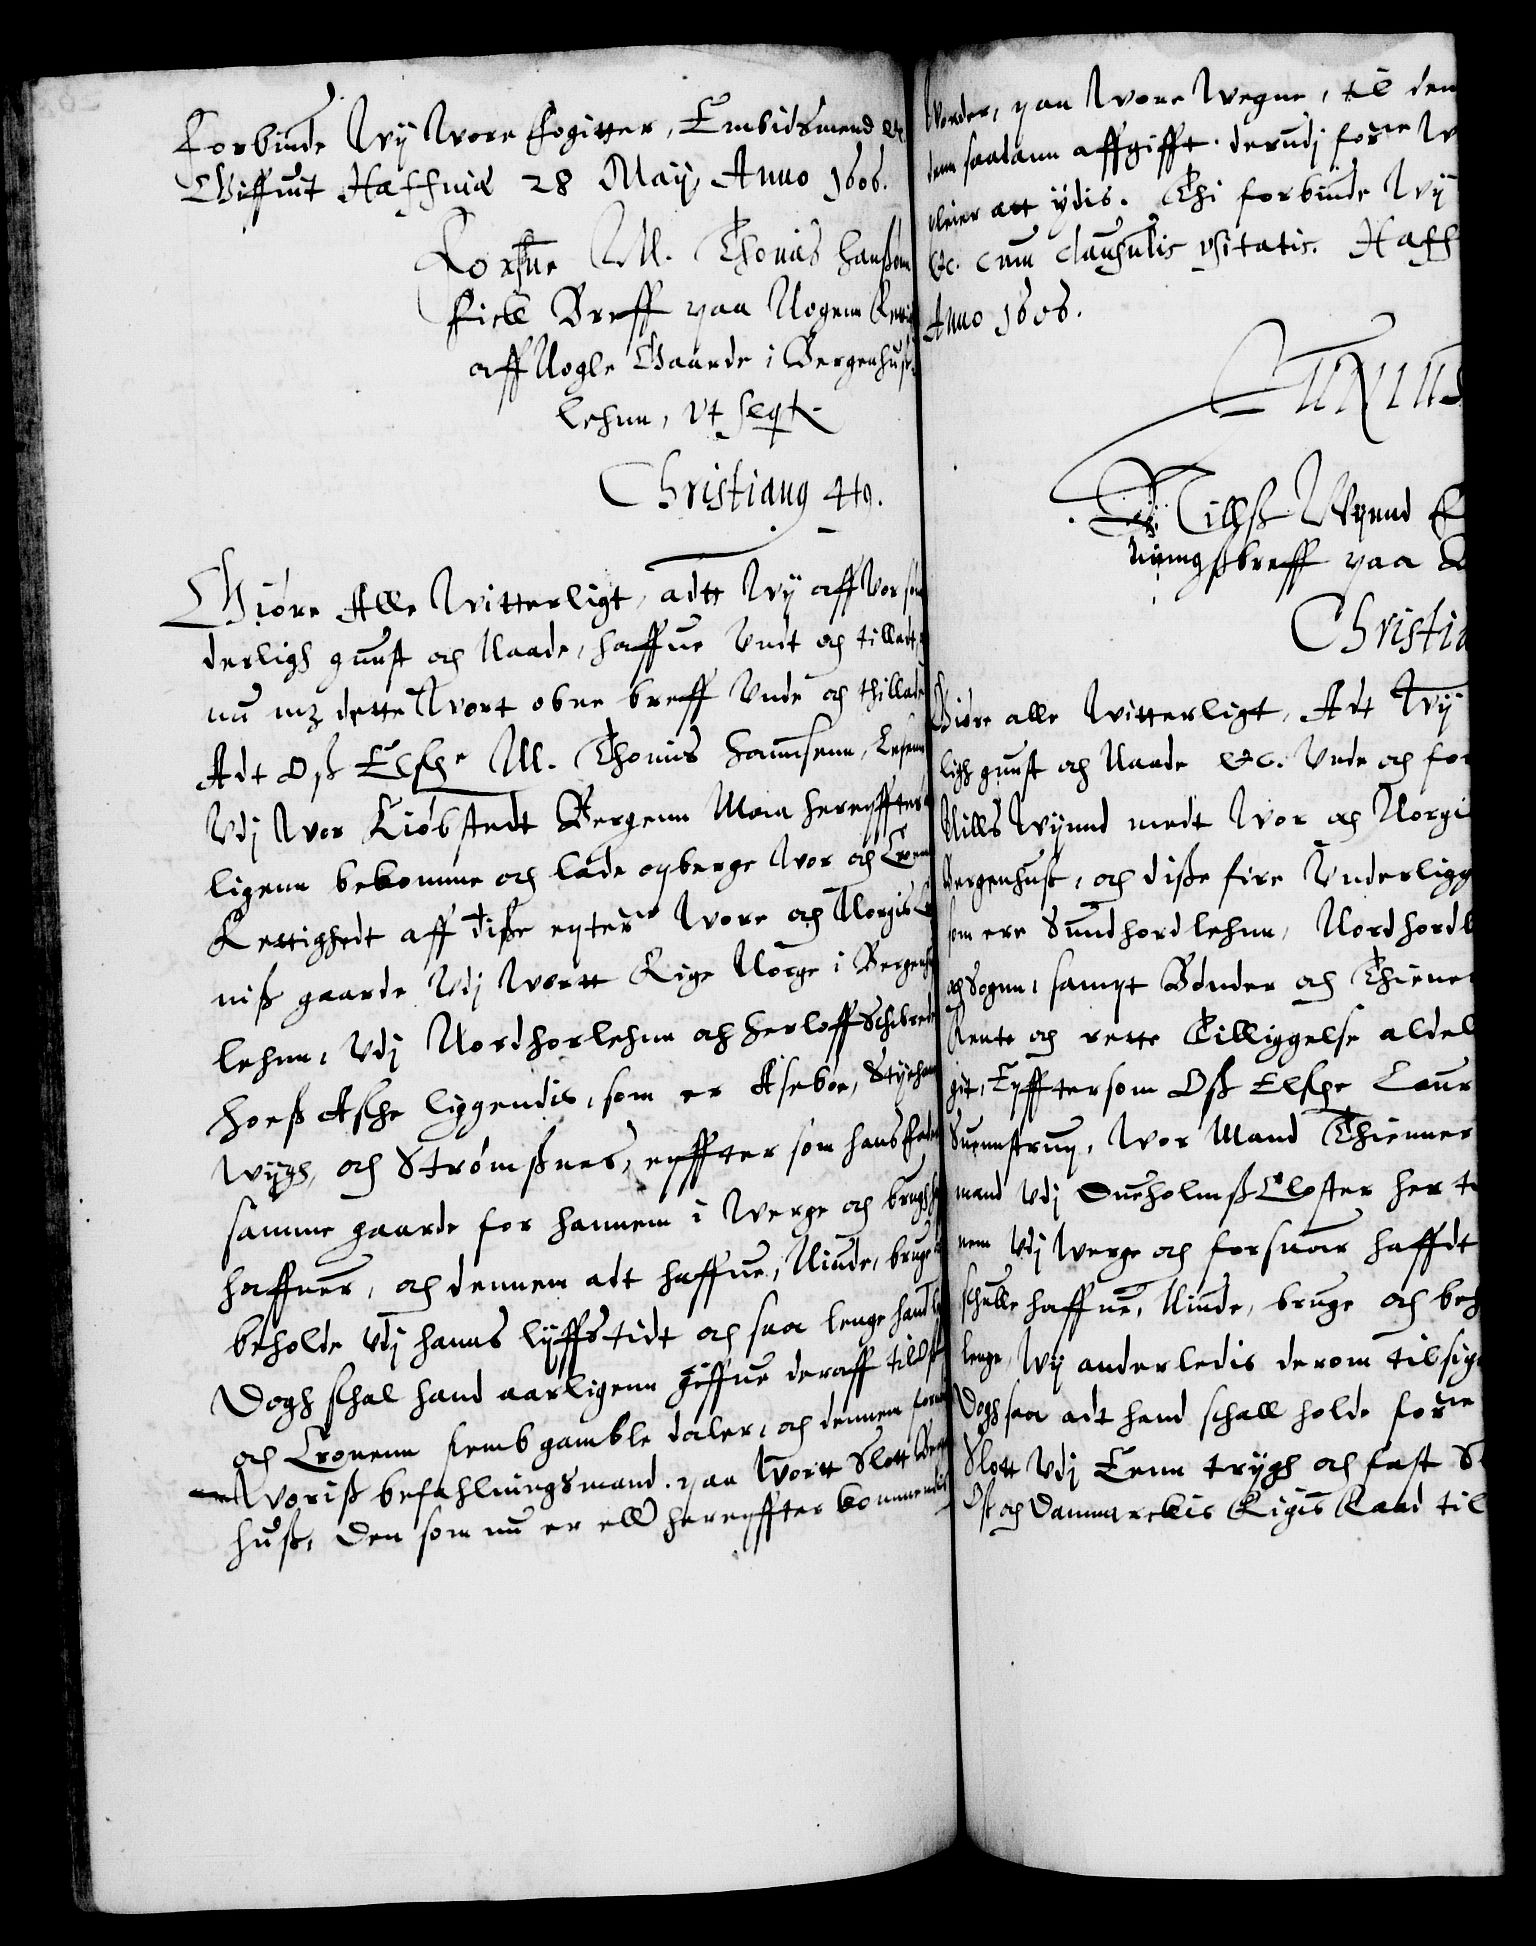 Forbinde Wij Wore Fogitter, Embidsmend etc.
Giffuit Haffniæ 28 Maij Anno 1606.
For:ne M. Thonis Hanßøn
fick Breff paa Nogenn
aff Nogle Gaarde i Bergenhuß
lehnn, Vt seqt.
Christianus 4tus.
Giøre Alle Witterligt, adtt Wij aff Vor sön
derligh gunst och Naade, haffue Vndt och tilladt,
nu mz dette Wort obne breff Vnde och thillade
Adt Oß Elsche M. Thonis Hannsenn, Lesem
Vdj Wor Kiöbstedt Bergenn Maa herepffter
ligenn bekomme och lade opberge Wor och Cronens
Rettighedt aff diße epter:ne Wore och Norgis Cro
niß gaarde Vdj Wortt Rige Norge i Bergenhuß
lehnn, Vdj Nordhorlehnn och Herloff Schibrede
hoeß Asche liggendis, som er Aseböe,
Wijgh, och Strømßnes, epffter som hans
samme gaarde for hannem i Werge och brugh
haffuer, och dennem adt haffue, Niude, bruge och
beholde Vdj hanns lijffs tidt och saa lenge hand
Dogh schal hand aarligenn giffue deraff till Oß
och Cronenn femb gamble daler, och dennem
Woriß befahlningsmand paa Wortt Slott Bergen
huß, Den som nu er eller herepffter kommendis
Worder, paa Wore Wegne, til den
dem saadann affgifft derudj for:ne W
pleier att ydis. Thi forbinde Wij
etc. cum clausulis usitatis. Haff
Anno 1606.
Nillß Wijnnd
ningsbreff paa
Christia
Giøre alle Witterligt, Adt Wij
ligh gunst och Naade etc. Vnde och for
Nills Wijnnd medt Wor och Norgi
Bergenhuß, och diße fire Vnderligg
som ere Sundhordlehnn, Nordhordl
och Sognn, sampt Bönder och Thiener
Rente och rette Tilliggelse aldel
git, Epffter som Oß Elsche Laur
Suennstrup, Wor Mand Thienner
mand Vdj Dueholmß Closter her ti
nem Vdj Werge och forsuar haffdt
schulle haffue, Niude, bruge och beh
lenge Wij anderledis derom tilsige
Dogh saa adt hand schall holde for:ne
Slott Vdj Eenn trijgh och fast
Oß och Danmarckis Rigis Raad til